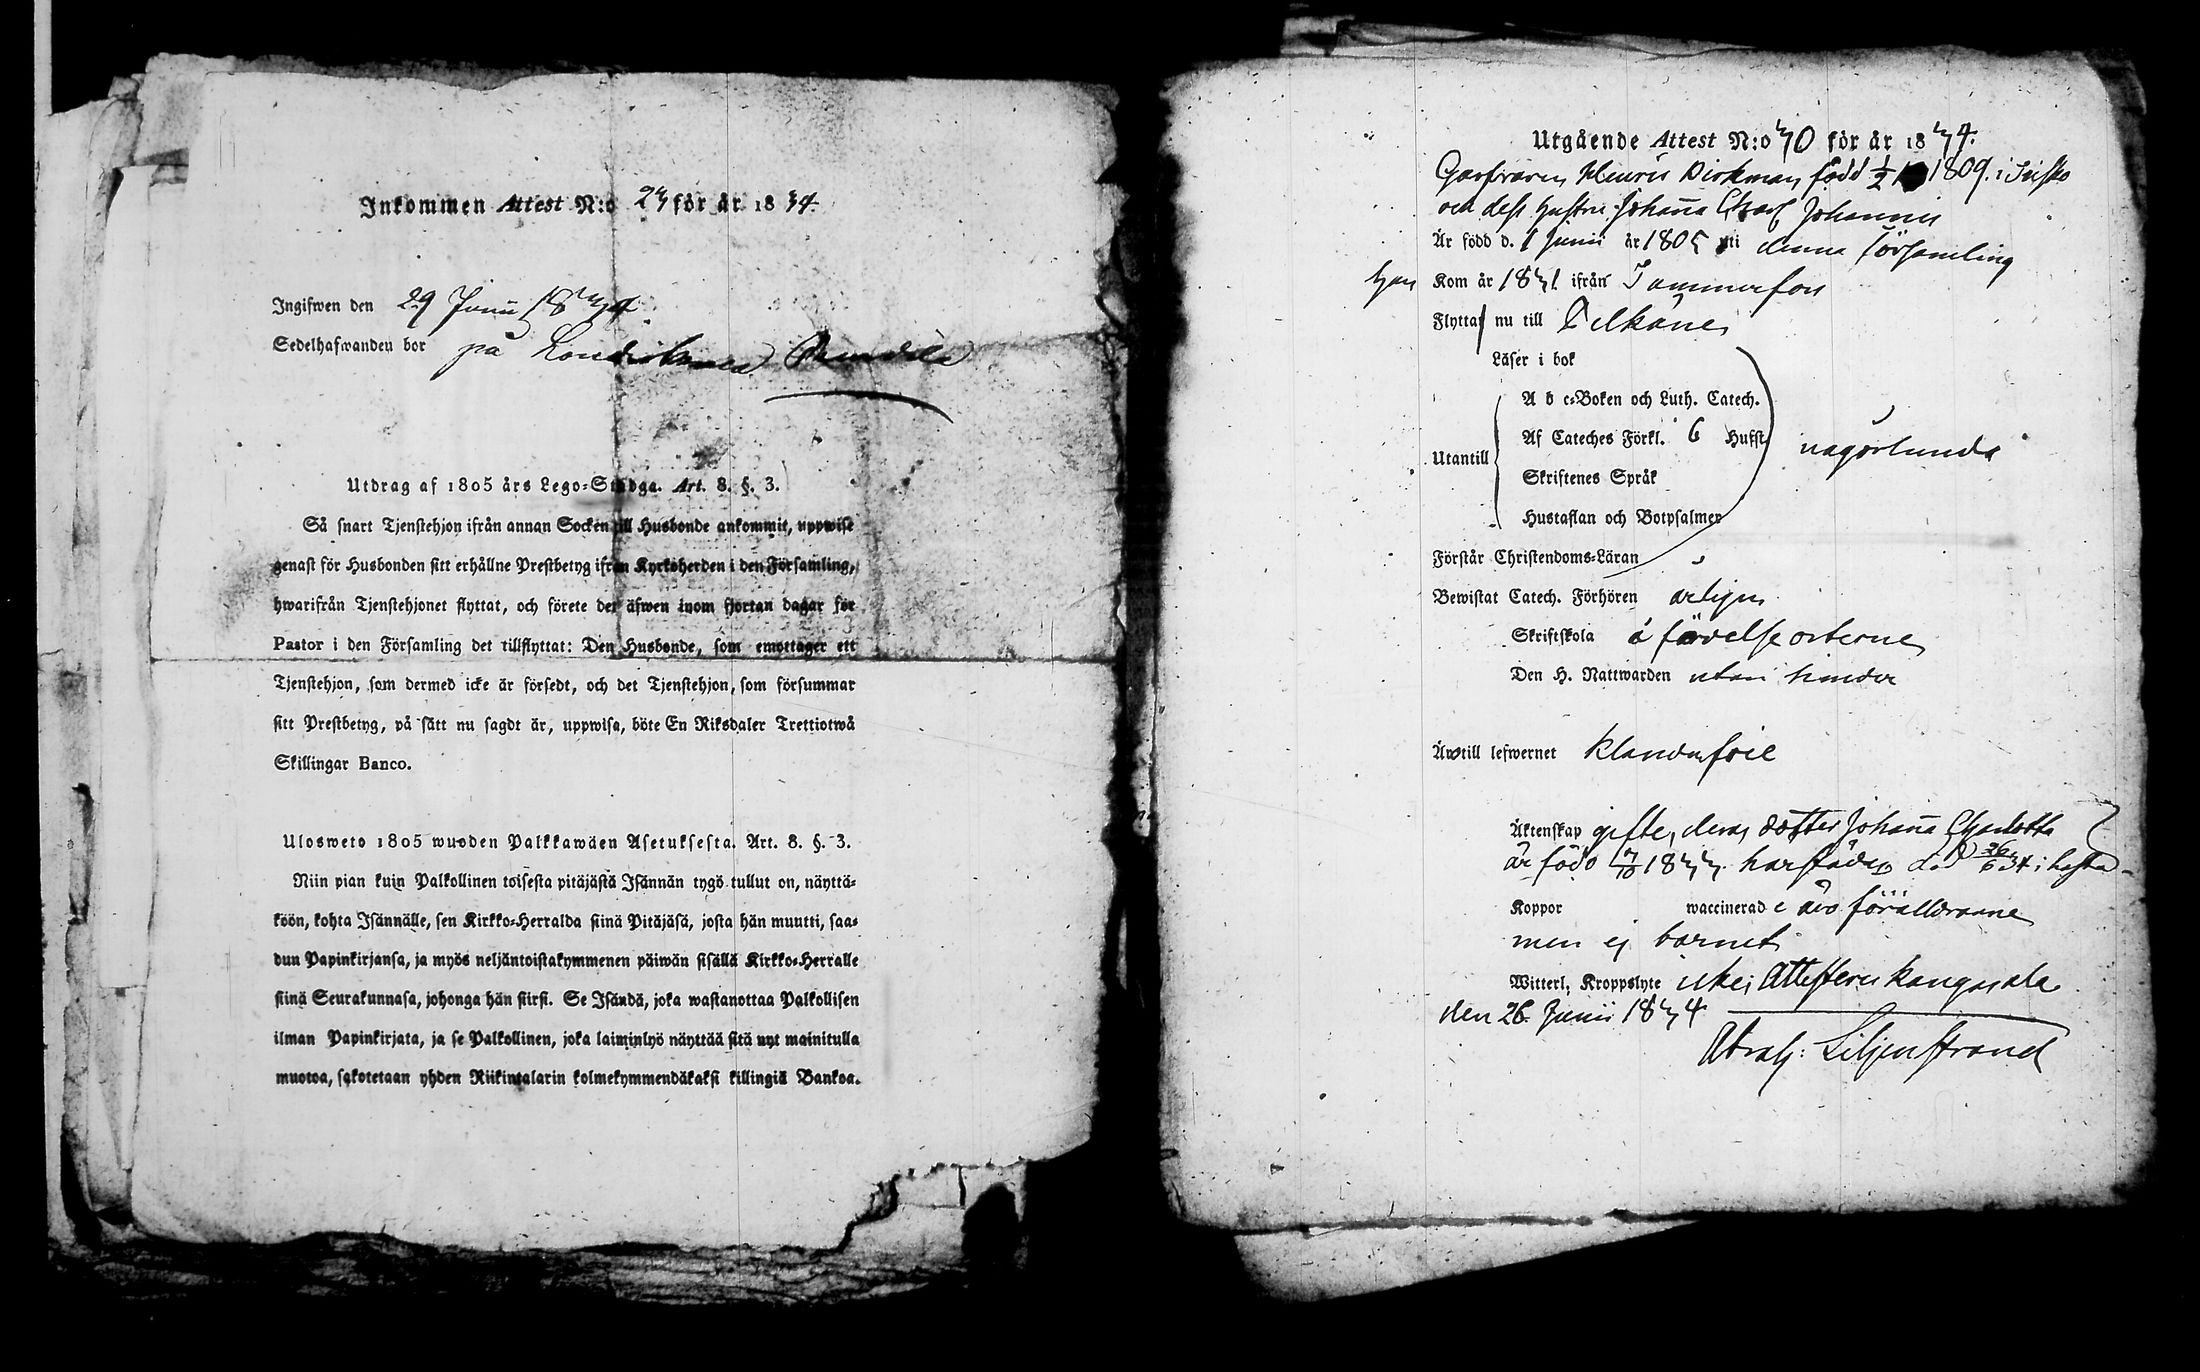 Inkommen Attest N:o 23 för år 1834.
Ingifwen den 29 Junii 1834.
Sedelhafwanden bor på
Utdrag af 1805 års Lego-Stadga. Art. 8. §. 3.
Så snart Tjenstehjon ifrån annan Socken till Husbonde ankommit, uppwise
genast för Husbonden sitt erhållne Prestbetyg ifrån Kyrkoherden i den Församling,
hwarifrån Tjenstehjonet flyttat, och förete det äfwen inom fjortan dagar för
Pastor i den Församling det tillflyttat: Den Husbonde, som emottager ett
Tjenstehjon, som dermed icke är försedt, och det Tjenstehjon, som försummar
sitt Prestbetyg, på sätt nu sagdt är, uppwisa, böte En Riksdaler Trettiotwå
Skillingar Banco.
Ulosweto 1805 wuoden Palkkawäen Asetuksesta. Art. 8. §. 3.
Niin pian kuin Palkollinen toisesta pitäjästä Isännän tygö tullut on, näyttä-
köön, kohta Isännälle, sen Kirkko-Herralda siinä Pitäjäsä, josta hän muutti, saa-
dun Papinkirjansa, ja myös neljäntoistakymmenen päiwän sisällä Kirkko-Herralle
siinä Seurakunnasa, johonga hän siirsi. Se Isändä, joka wastanottaa Palkollisen
ilman Papinkirjata, ja se Palkollinen, joka laiminlyö näyttää sitä nyt mainitulla
muotoa, sakotetaan yhden Riikintalarin kolmekymmendäkaksi killingiä Bankoa.
Utgående Attest N:o 30 för år 1834.
Garfvaren Henric Dirkman, född 1/2 1809. i
och dess hustru Johanna Charl Johannis
Är född d. 1 Junii år 1805 uti denna församling
han Kom år 1831 ifrån Tammerfors
Flytta nu till Pelkäne
Läser i bok
Utantill
A b c-Boken och Luth. Catech.
Af Cateches Förkl. 6 Hufst.
någorlunda
Skriftenes Språk
Hustaflan och Botpsalmer
Förstår Christendoms-Läran
Bewistat Catech. Förhören årligen
Skriftskola å födelseorterne
Den H. Nattwarden utan hinder
Äro till lefwernet klanderfrie
Äktenskap gifte, deras dotter Johanna Charlotta
är född 7/10 1833. d. 26/6 34 i
Koppor waccinerad e äro föräldrarne
men ej barnet
Witterl. Kroppslyte icke; Attesteras Kangasala
den 26 Junii 1834
Abrah: Liljenstrand